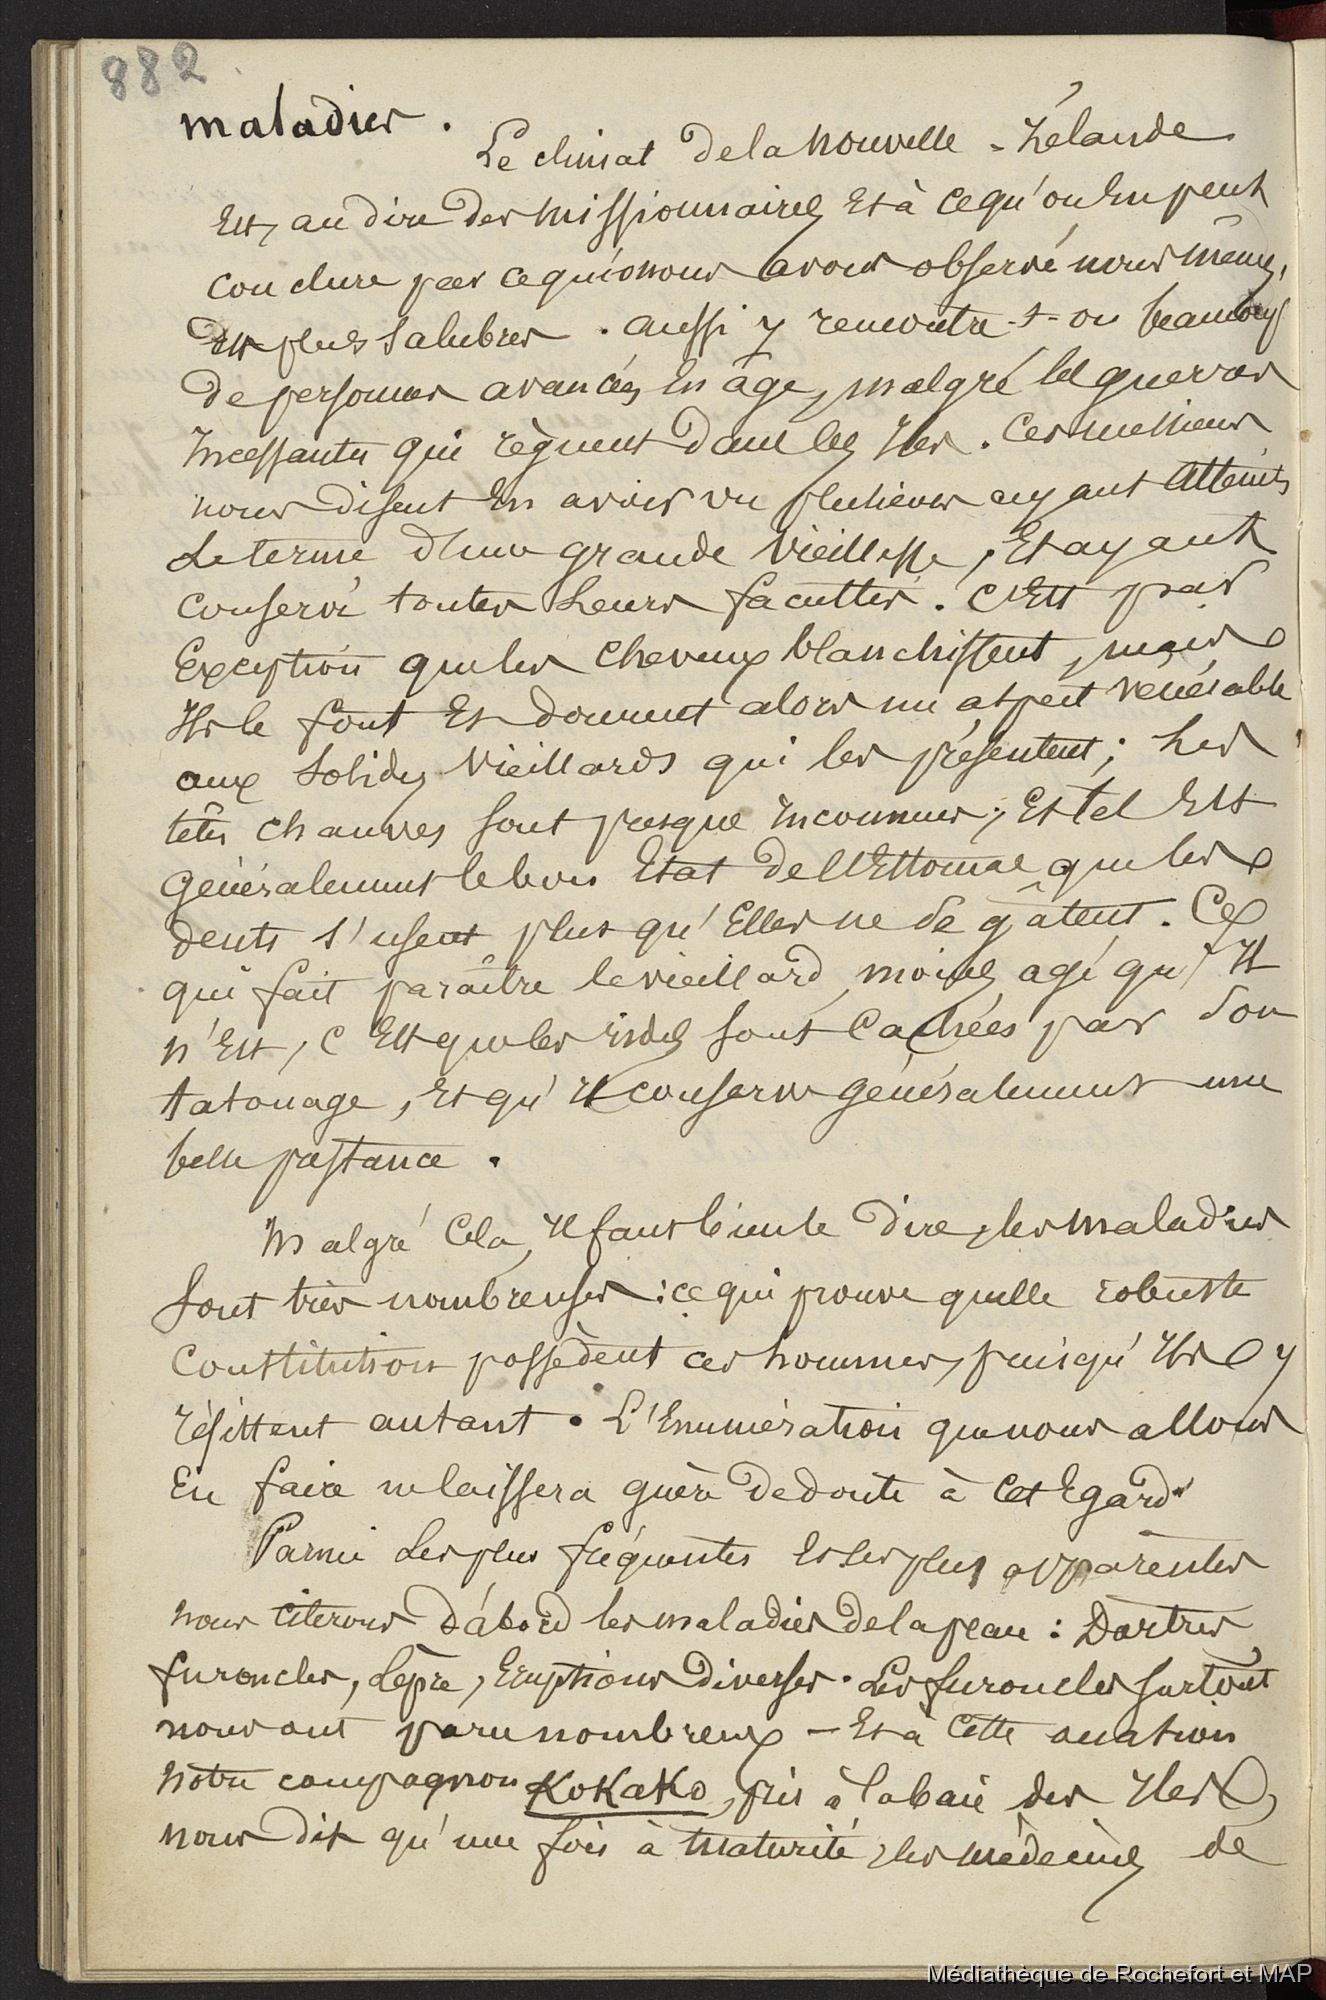 882
maladies.
Le climat de la Nouvelle-Zélande
Est, au dire des missionnaires Et à ce qu'on En peut
conclure par ce que nous avons observé nous mêmes,
Des plus salubres. Aussi y rencontre-t-on beaucoup
de personnes avancées En âge, malgré les guerres
Incessantes qui règnent dans les Iles. Ces messieurs
nous disent En avoir vu plusieurs ayant atteints
Le terme d'une grande vieillesse, Et ayant
conservé toutes Leurs facultés. C'Est par
Exception que les cheveux blanchissent, mais
Ils le font Et donnent alors un aspect vénérable
aux solides vieillards qui les présentent; Les
têtes chauves sont presque Inconnues; Et tel Est
généralement le bon Etat de l'Estomac que les
dents s'usent plus qu'Elles ne se gâtent. Ce
qui fait paraître le vieillard moins agé qu'Il
n'Est, c'Est que les rides sont cachées par son
tatouage, Et qu'Il conserve généralement une
belle prestance.
Malgré Cela, Il faut bien le dire, les maladies
sont très nombreuses: ce qui prouve quelle robuste
constitution possèdent ces hommes, puisqu'Ils y
résistent autant. L'Enumération que nous allons
En faire ne laissera guère de doute à cet Egard.
Parmi Les plus fréquentes Et Les plus apparentes
nous citerons d'abord les maladies de la peau: Dartres,
furoncles, Lèpre, Eruptions diverses. Les furoncles surtout
nous ont paru nombreux — Et à cette occasion
notre compagnon Kokako, pris à la baie des Iles,
nous dit qu'une fois à maturité, les médecins de
Médiathèque de Rochefort et MAP